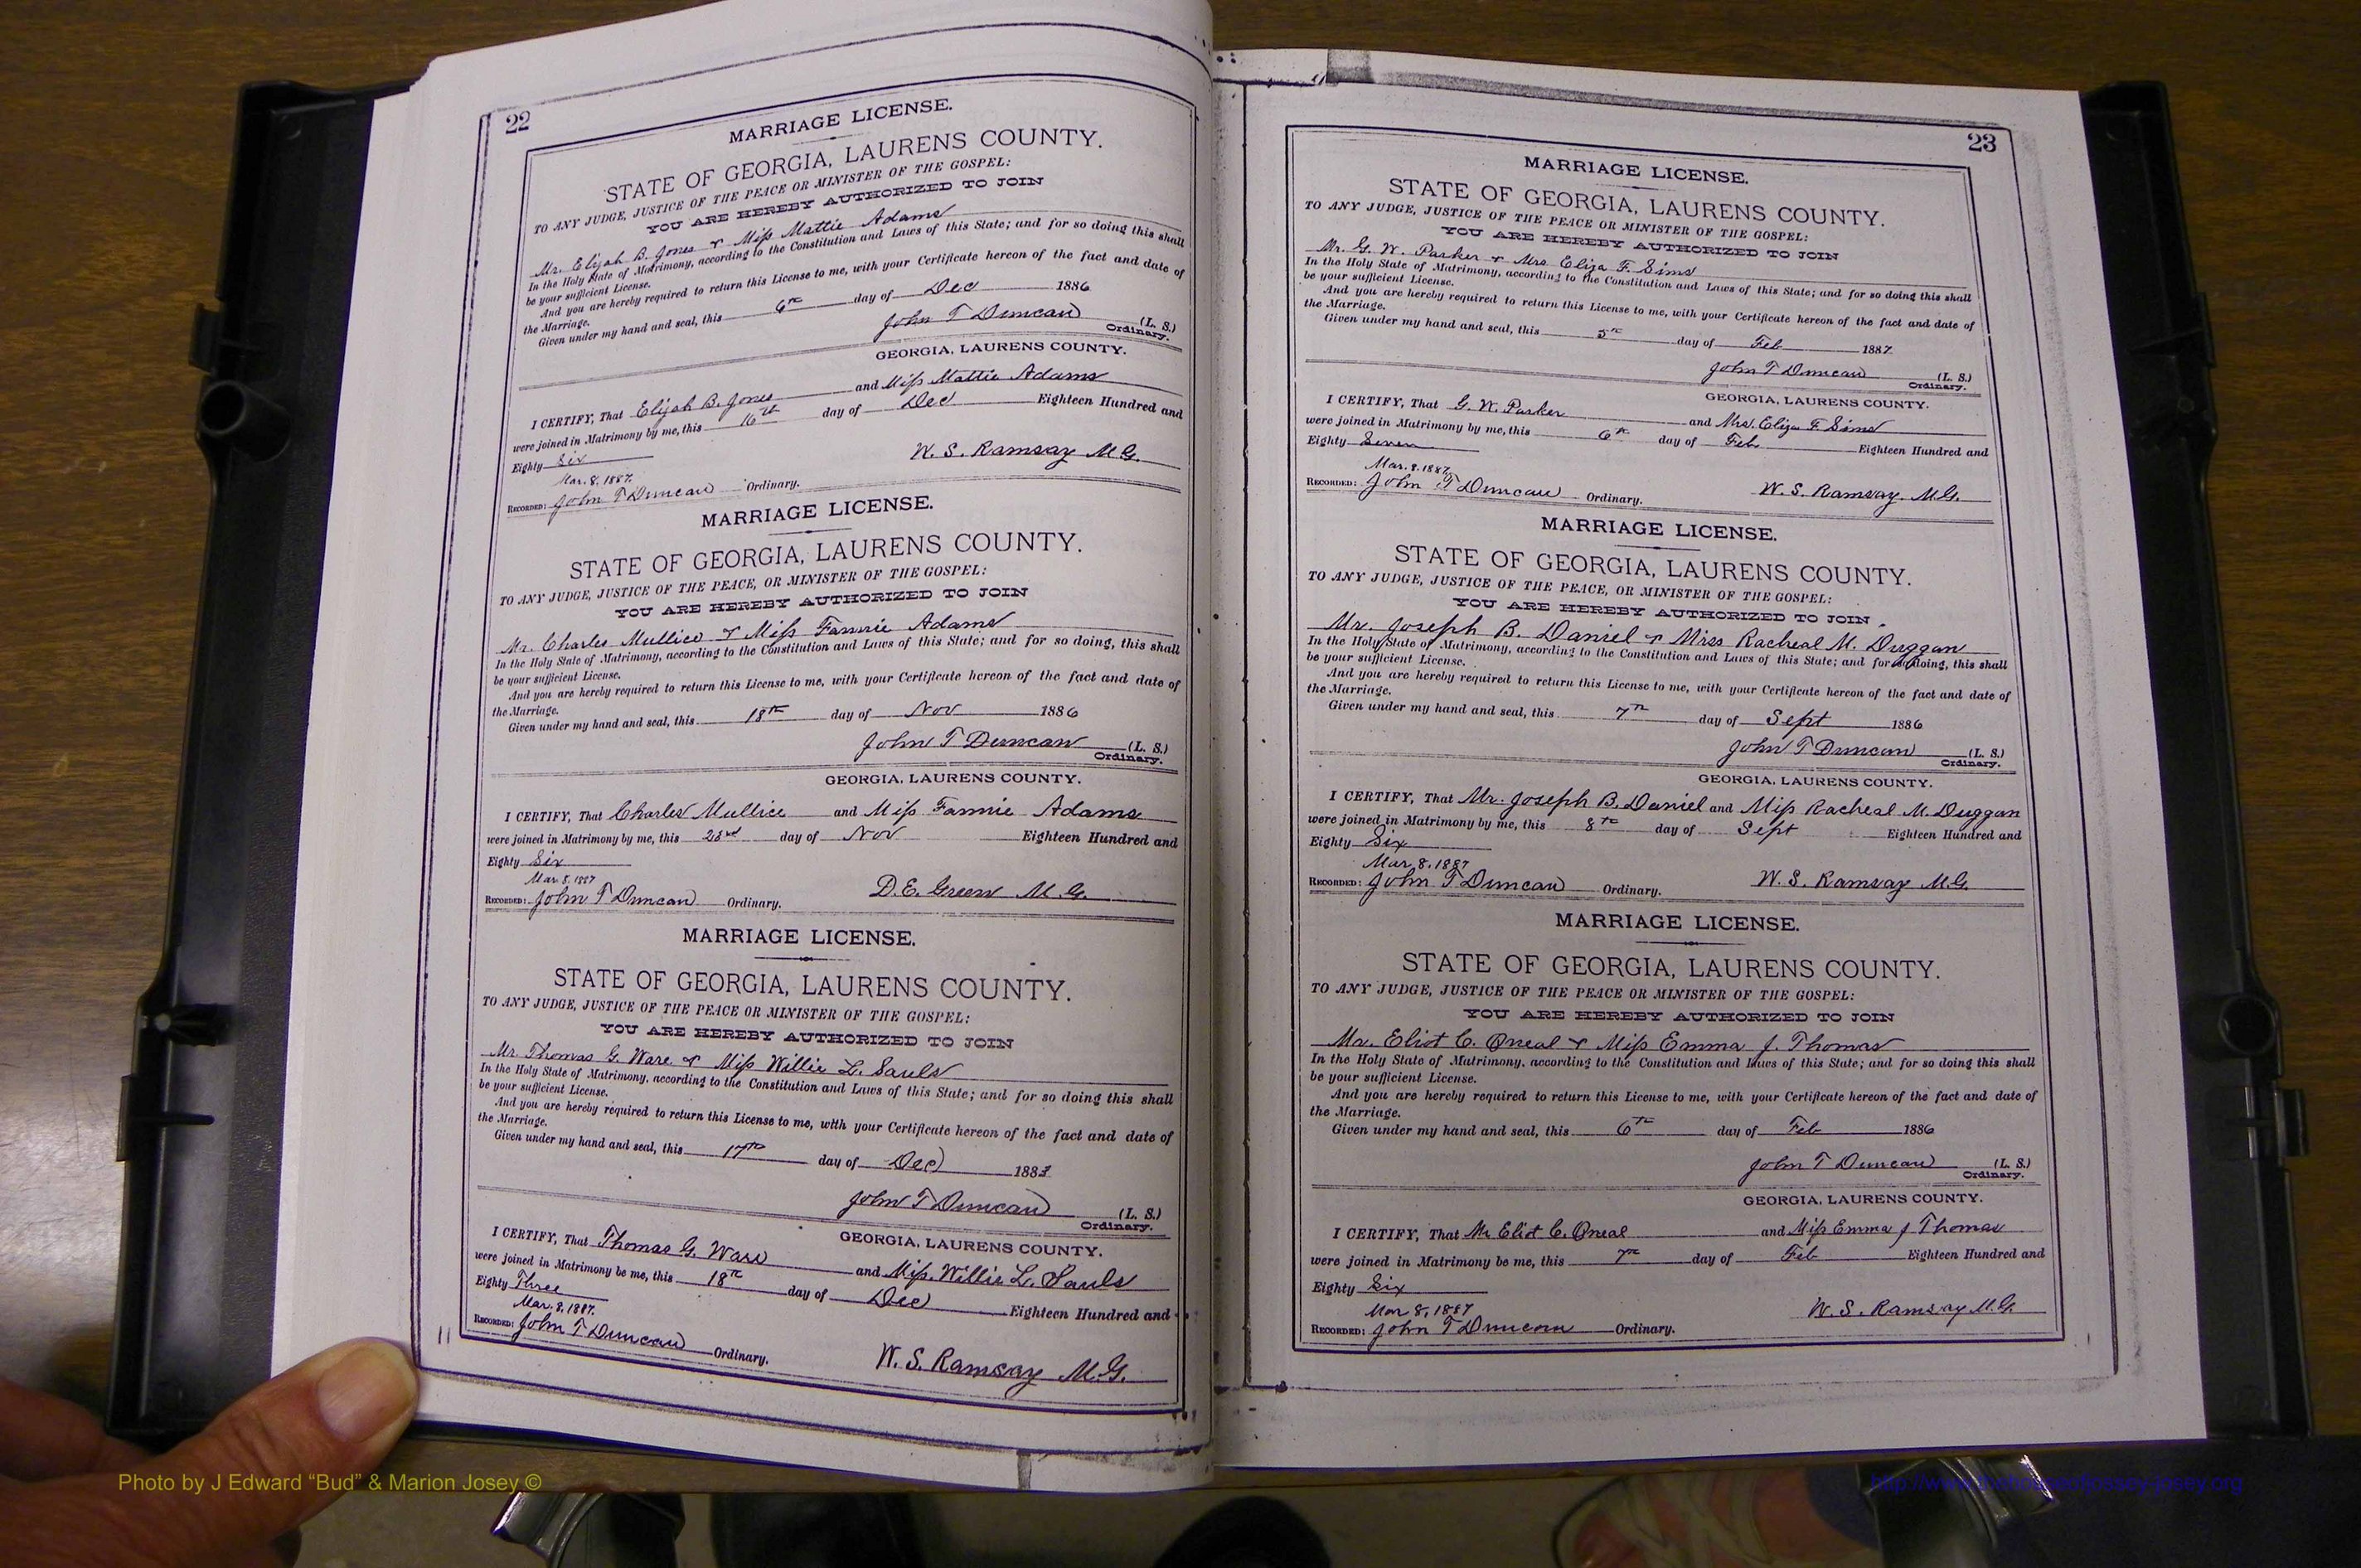 22
MARRIAGE LICENSE.
STATE OF GEORGIA, LAURENS COUNTY.
TO ANY JUDGE, JUSTICE OF THE PEACE OR MINISTER OF THE GOSPEL:
YOU ARE HEREBY AUTHORIZED TO JOIN
Mr. Elijah B. Jones & Miss Mattie Adams
In the Holy State of Matrimony, according to the Constitution and Laws of this State; and for so doing this shall
be your sufficient License.
And you are hereby required to return this License to me, with your Certificate hereon of the fact and date of
the Marriage.
Given under my hand and seal, this 6th day of Dec 1886
John T Duncan (L. S.)
Ordinary.
GEORGIA, LAURENS COUNTY.
I CERTIFY, That Elijah B. Jones and Miss Mattie Adams
were joined in Matrimony by me, this 16th day of Dec Eighteen Hundred and
Eighty Six
W. S. Ramsay M.G.
Mar. 8. 1887.
RECORDED: John T Duncan Ordinary.
MARRIAGE LICENSE.
STATE OF GEORGIA, LAURENS COUNTY.
TO ANY JUDGE, JUSTICE OF THE PEACE, OR MINISTER OF THE GOSPEL:
YOU ARE HEREBY AUTHORIZED TO JOIN
Mr. Charles Mullice & Miss Fannie Adams
In the Holy State of Matrimony, according to the Constitution and Laws of this State; and for so doing, this shall
be your sufficient License.
And you are hereby required to return this License to me, with your Certificate hereon of the fact and date of
the Marriage.
Given under my hand and seal, this 18th day of Nov 1886
John T Duncan (L. S.)
Ordinary.
GEORGIA, LAURENS COUNTY.
I CERTIFY, That Charles Mullice and Miss Fannie Adams
were joined in Matrimony by me, this 23rd day of Nov Eighteen Hundred and
Eighty Six
Mar. 8. 1887
RECORDED: John T Duncan Ordinary. D. E. Green M.G.
MARRIAGE LICENSE.
STATE OF GEORGIA, LAURENS COUNTY.
TO ANY JUDGE, JUSTICE OF THE PEACE OR MINISTER OF THE GOSPEL:
YOU ARE HEREBY AUTHORIZED TO JOIN
Mr. Thomas G. Ware & Miss Willie L. Sauls
In the Holy State of Matrimony, according to the Constitution and Laws of this State; and for so doing this shall
be your sufficient License.
And you are hereby required to return this License to me, with your Certificate hereon of the fact and date of
the Marriage.
Given under my hand and seal, this 17th day of Dec 1883
John T Duncan (L. S.)
Ordinary.
GEORGIA, LAURENS COUNTY.
I CERTIFY, That Thomas G. Ware and Miss. Willie L. Sauls
were joined in Matrimony be me, this 18th day of Dec Eighteen Hundred and
Eighty Three
Mar. 8. 1887.
RECORDED: John T Duncan Ordinary.
W. S. Ramsay M.G.
23
MARRIAGE LICENSE.
STATE OF GEORGIA, LAURENS COUNTY.
TO ANY JUDGE, JUSTICE OF THE PEACE OR MINISTER OF THE GOSPEL:
YOU ARE HEREBY AUTHORIZED TO JOIN
Mr. G. W. Parker & Mrs Eliza F. Sims
In the Holy State of Matrimony, according to the Constitution and Laws of this State; and for so doing this shall
be your sufficient License.
And you are hereby required to return this License to me, with your Certificate hereon of the fact and date of
the Marriage.
Given under my hand and seal, this 5th day of Feb 1887
John T Duncan (L. S.)
Ordinary.
GEORGIA, LAURENS COUNTY.
I CERTIFY, That G. W. Parker and Mrs. Eliza F. Sims
were joined in Matrimony by me, this 6th day of Feb Eighteen Hundred and
Eighty Seven
Mar. 8. 1887.
RECORDED: John T Duncan Ordinary. W. S. Ramsay. M.G.
MARRIAGE LICENSE.
STATE OF GEORGIA, LAURENS COUNTY.
TO ANY JUDGE, JUSTICE OF THE PEACE, OR MINISTER OF THE GOSPEL:
YOU ARE HEREBY AUTHORIZED TO JOIN
Mr. Joseph B. Daniel & Miss Racheal M. Duggan
In the Holy State of Matrimony, according to the Constitution and Laws of this State; and for so doing, this shall
be your sufficient License.
And you are hereby required to return this License to me, with your Certificate hereon of the fact and date of
the Marriage.
Given under my hand and seal, this 7th day of Sept 1886
John T Duncan (L. S.)
Ordinary.
GEORGIA, LAURENS COUNTY.
I CERTIFY, That Mr. Joseph B. Daniel and Miss Racheal M. Duggan
were joined in Matrimony by me, this 8th day of Sept Eighteen Hundred and
Eighty Six
Mar. 8. 1887
RECORDED: John T Duncan Ordinary. W. S. Ramsay M.G.
MARRIAGE LICENSE.
STATE OF GEORGIA, LAURENS COUNTY.
TO ANY JUDGE, JUSTICE OF THE PEACE OR MINISTER OF THE GOSPEL:
YOU ARE HEREBY AUTHORIZED TO JOIN
Mr. Eliot C. Oneal & Miss Emma J. Thomas
In the Holy State of Matrimony, according to the Constitution and Laws of this State; and for so doing this shall
be your sufficient License.
And you are hereby required to return this License to me, with your Certificate hereon of the fact and date of
the Marriage.
Given under my hand and seal, this 6th day of Feb 1886
John T Duncan (L. S.)
Ordinary.
GEORGIA, LAURENS COUNTY.
I CERTIFY, That Mr Eliot C. Oneal and Miss Emma J Thomas
were joined in Matrimony be me, this 7th day of Feb Eighteen Hundred and
Eighty Six
Mar 8, 1887 W. S. Ramsay M.G.
RECORDED: John T Duncan Ordinary.
Photo by J Edward “Bud” & Marion Josey ©
http://www.thehouseofjossey-josey.org